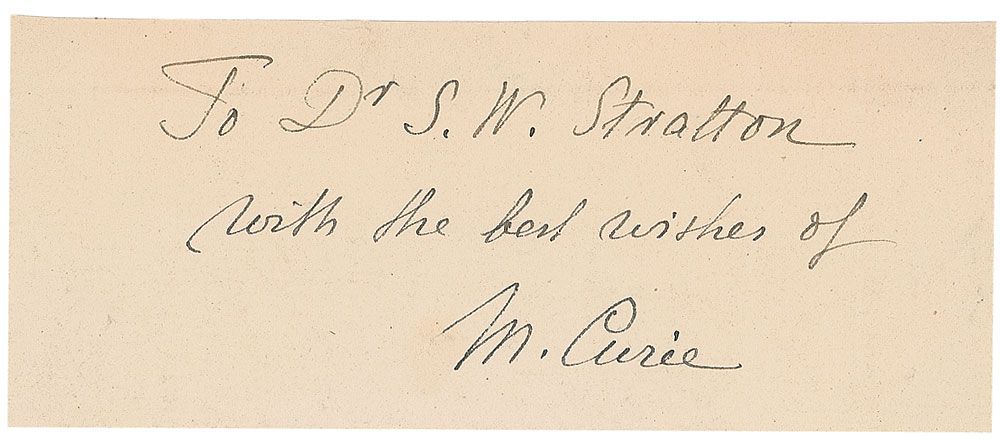 To Dr S. W. Stratton
with the best wishes of
M. Curie